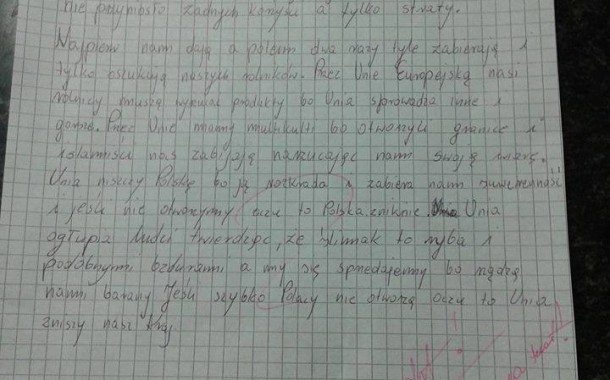 nie przyniosło żadnych korzyści a tylko straty.
Najpierw nam dają a potem dwa razy tyle zabierają i
tylko oszukują naszych rolników. Przez Unie Europejską nasi
rolnicy muszą produkty bo Unia sprowadza inne i
gorsze. Przez Unie mamy multikulti bo otworzyli granice i
islamiści nas zabijają narzucając nam swoją wiarę.
Unia niszczy Polskę bo ją rozkrada i zabiera nam suwerenność
i jeśli nie otworzymy oczu to Polska zniknie. Unia
ogłupia ludzi twierdząc, że ślimak to ryba i
podobnymi bzdurami a my się sprzedajemy bo rządzą
nami barany Jeśli szybko Polacy nie otworzą oczu to Unia
zniszy nasz kraj